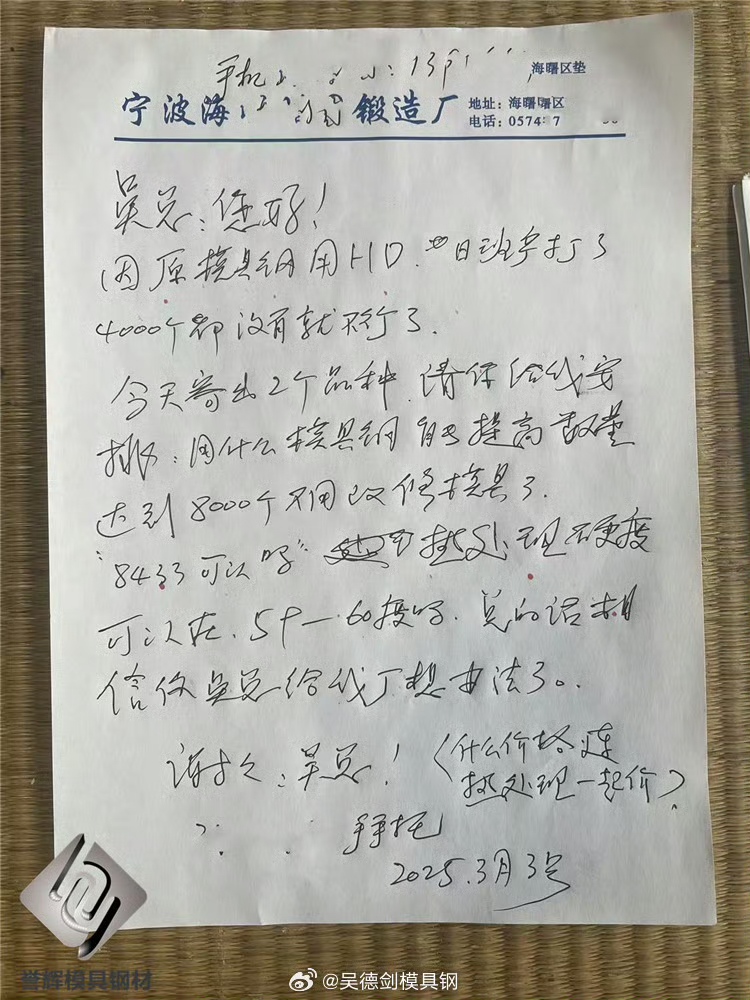 手机 : 13
海曙区垫
宁波海 锻造厂
地址：海曙曙区
电话：0574 7
吴总：您好！
因原模具钢用HD. 日班字打了
4000个都没有就不行了.
今天寄出2个品种.请你给我安
排：用什么模具钢 提高数量
达到8000个不用改修模具了.
"8433可以吗" 热处理硬度
可以在.59-60度吗.总的话相
信你吴总给我厂想办法了。
谢谢：吴总！（什么价格连
热处理一起价）
拜托
2025.3月3号
誉辉模具钢材
@吴德剑模具钢